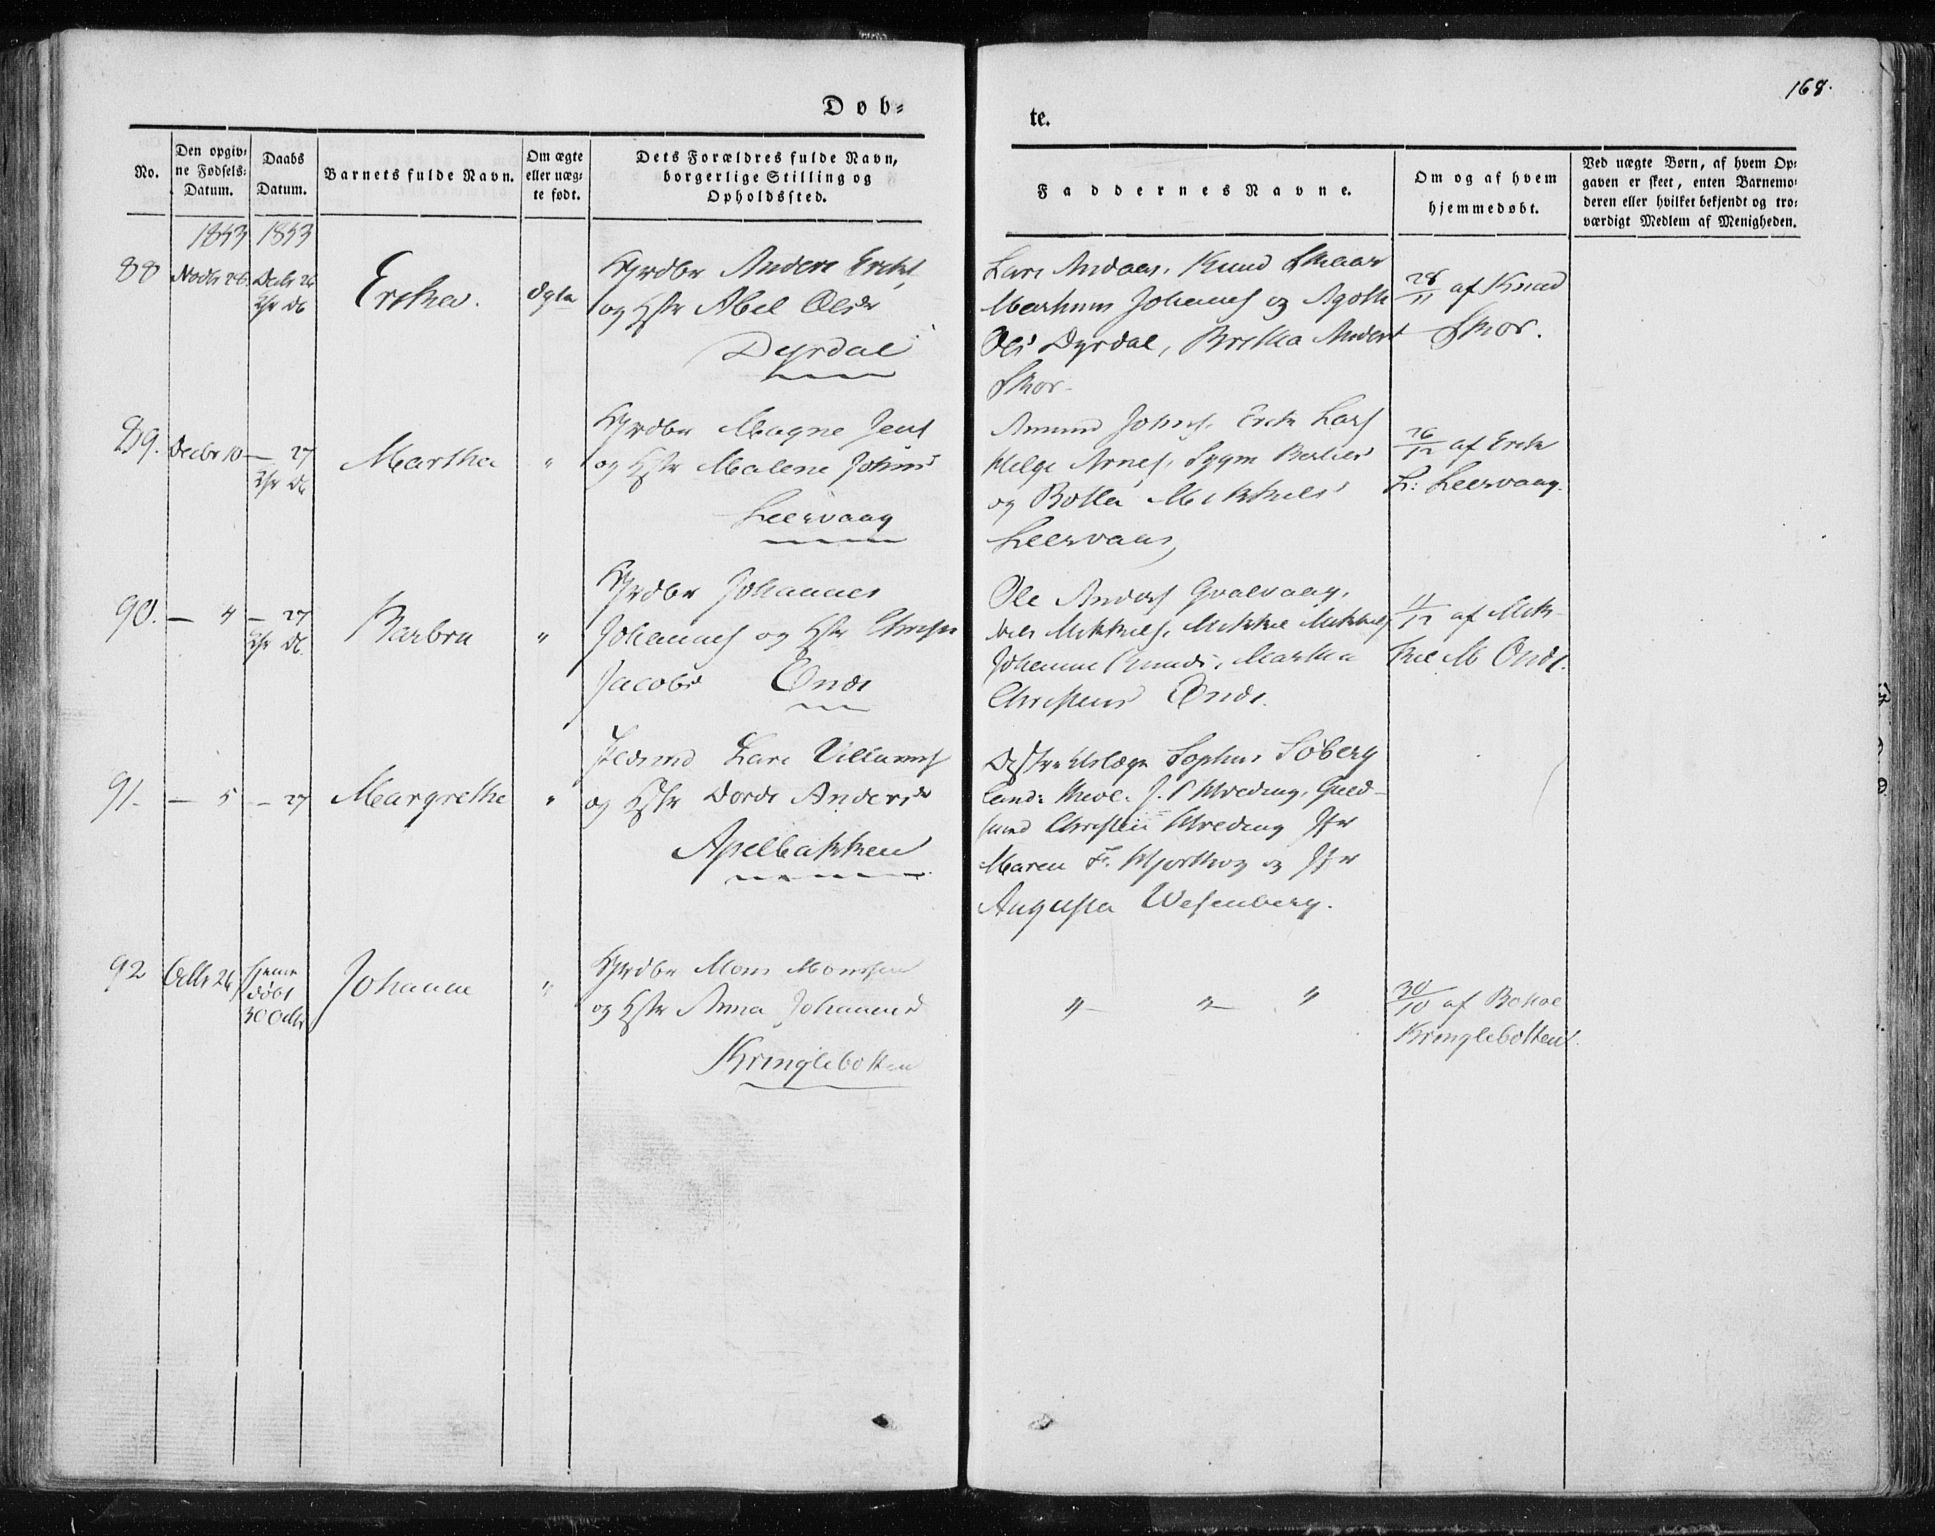 168.
Døb-
te.
No.
Den opgiv-
ne Fødsels-
Datum.
Daabs
Datum.
Barnets fulde Navn.
Om ægte
eller uæg-
te født.
Dets Forældres fulde Navn,
borgerlige Stilling og
Opholdssted.
Faddernes Navne.
Om og af hvem
hjemmedøbt.
Ved uægte Børn, af hvem Op-
gaven er skeet, enten Barnemo-
deren eller hvilket bekjendt og tro-
værdigt Medlem af Menigheden.
1853 1853
88 Novbr 28. Decbr 26
Ericka. ægte
Grdbr Anders Ericks.
og Hstr Abel Olsdr
Dyrdal
Lars Andaas, Knud Skaar
Markus Johannes. og Agathe
Ols: Dyrdal, Britha Anders
Skor.
28/11 af Knud
Skor.
89. Decbr 10 — 27
Martha "
Grdbr Magne Jens.
og Hstr Malene Johns
Leervaag
Amund Johns. Erik Lars.
Helge Arnes.
og Botle Mikkels
Leervaag
26/12 af Erik
L: Leervaag.
90. — 4 — 27
Barbra "
Grdbr Johannes
Johannes. og Hstr
Jacobs Ende
Ole Anders. Qvalvaag,
Nils Mikkels. Mikkel Mikkels.
Johanne Knuds. Martha
Christens Ende.
11/12 af Mik-
kel M Ende.
91. — 5 — 27
Margrethe "
Lars Villums.
og Hstr Dorde Andersdr
Apelbakken
Sophus Søberg
Cand: theol: J.
Christen
Maren F. Hjorthog og Jfr
Augusta Wesenberg.
92 Octbr 26 hjeme
døbt
30 Octbr
Johanne "
Grdbr Mons Monsen
og Hstr Anna Johannesd
Kringlebotten
" — " — "
30/10 af
Kringlebotten